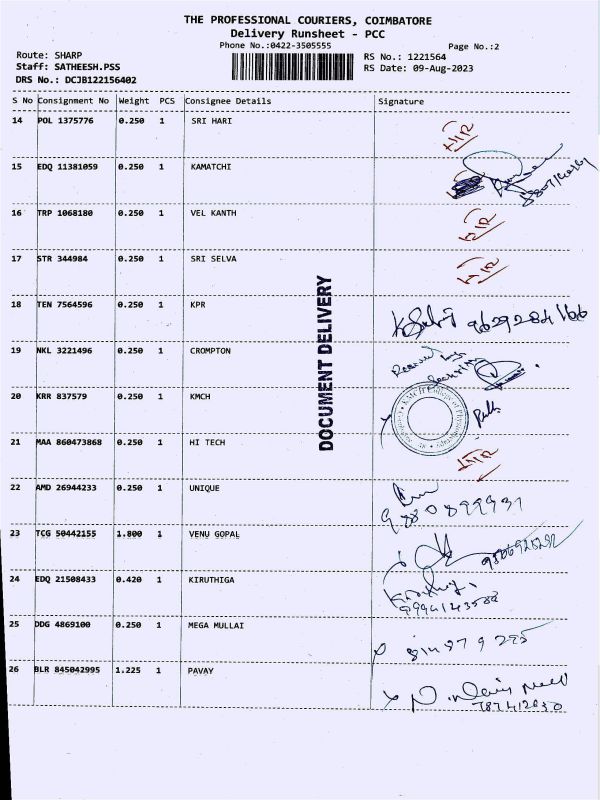 THE PROFESSIONAL COURIERS, COIMBATORE
Delivery Runsheet - PCC
Phone No.:0422-3505555
Page No.:2
Route: SHARP
RS No.: 1221564
Staff: SATHEESH.PSS
RS Date: 09-Aug-2023
DRS No.: DCJB122156402
S No Consignment No Weight PCS Consignee Details Signature
14 POL 1375776 0.250 1 SRI HARI
15 EDQ 11381059 0.250 1 KAMATCHI
16 TRP 1068180 0.250 1 VEL KANTH
17 STR 344984 0.250 1 SRI SELVA
18 TEN 7564596 0.250 1 KPR 9629284166
19 NKL 3221496 0.250 1 CROMPTON
20 KRR 837579 0.250 1 KMCH
21 MAA 860473868 0.250 1 HI TECH
22 AMD 26944233 0.250 1 UNIQUE
23 TCG 50442155 1.800 1 VENU GOPAL
24 EDQ 21508433 0.420 1 KIRUTHIGA
25 DDG 4869100 0.250 1 MEGA MULLAI
26 BLR 845042995 1.225 1 PAVAY
DOCUMENT DELIVERY